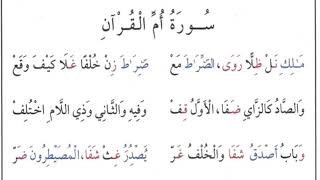 سُورَةُ أُمِّ الْقُرْآنِ
مَـٰلِكِ نَلْ ظِلًّا رَوَى، الصِّرَٰطَ مَعْ صِرَٰطَ زِنْ خُلْفًا غَلَا كَيْفَ وَقَعْ
وَالصَّادُ كَالزَّايِ ضَفَا، الْأَوَّلُ قِفْ وَفِيهِ وَالثَّانِي وَذِي اللَّامِ اخْتُلِفْ
وَبَابُ أَصْدَقُ شَفَا وَالْخُلْفُ غَرّ يُصْدِرُ غِثْ شَفَا، الْمُصَيْطِرُونَ ضَرّ